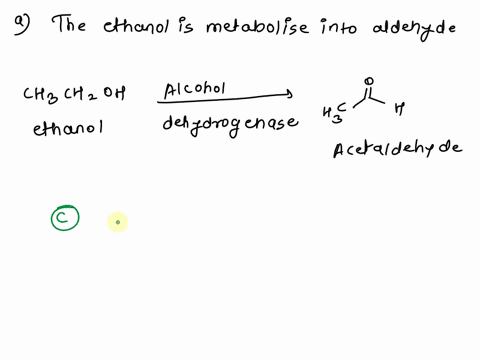 a) The ethanol is metabolise into aldehyde
CH3 CH2 OH Alcohol dehydrogenase
O
H3C H
ethanol
Acetaldehyde
C